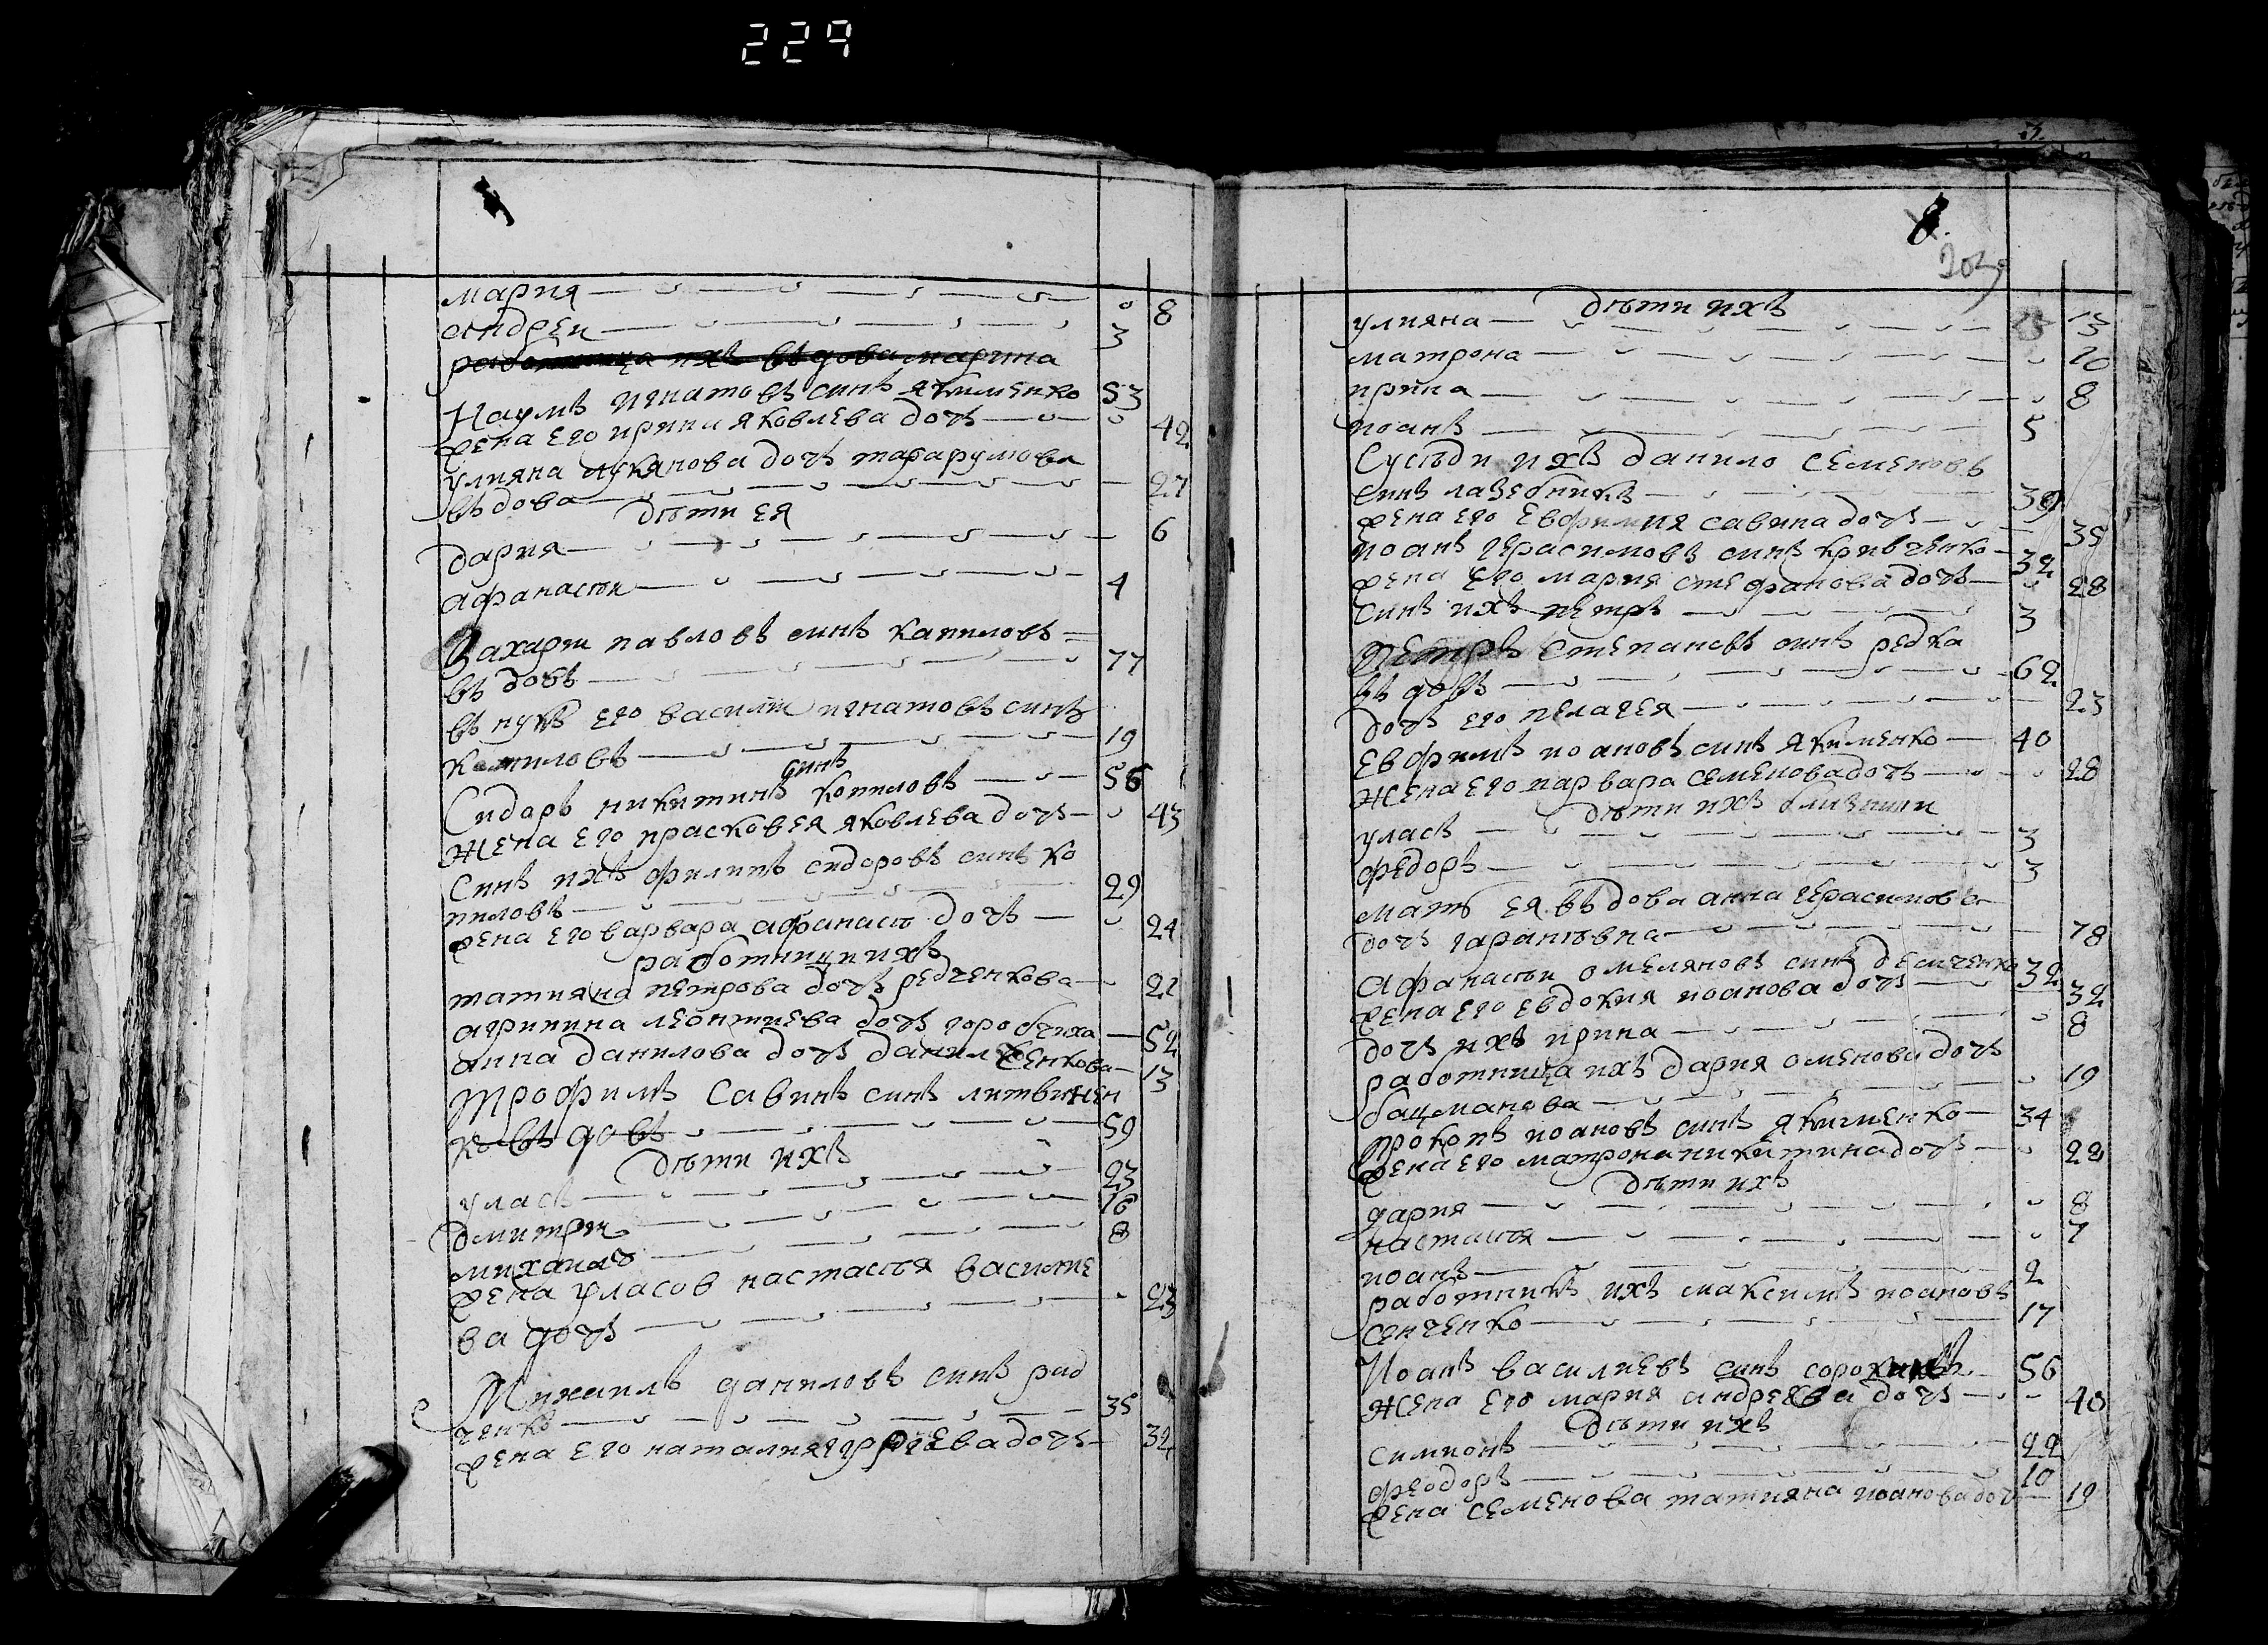 229
мария 8
андреи 3
работница ихъ въдова марина
Наумъ игнатовъ синъ якименко 53
жена его ирина яковлева дочъ 42
улияна лукянова дочъ
въдова 27
дѣти ея
дария 6
афанасѣи 4
Захарѣи павловъ синъ капиловъ
въдовъ 77
внукъ его василѣи игнатовъ синъ
копиловъ 19
Сидоръ никитинъ синъ копиловъ 56
жена его прасковея яковлева дочъ 43
Синъ ихъ филипъ сидоровъ синъ ко
пиловъ 29
жена его варвара афанасѣ дочъ 24
работници ихъ
татияна петрова дочъ редченкова 22
агрипина леонтиева дочъ горобчиха 52
анна данилова дочъ данилченкова 13
Трофимъ Савинъ синъ литвинен
ко въдовъ 59
дѣти ихъ
уласъ 23
дмитрѣи 16
михаило 8
жена уласов настасѣя василие
ва дочъ 23
Михаилъ даниловъ синъ ред
ченко 35
жена его наталия дочъ 32
8.
203
дѣти ихъ
улияна 13
матрона 10
ирина 8
иоанъ 5
Сусѣди ихъ данило семеновъ
синъ лазебникъ 39
жена его евфимия савина дочъ 35
иоанъ герасимовъ синъ кривченко 32
жена его мария стефанова дочъ 28
синъ ихъ петръ 3
Петръ Степановъ синъ редка
въдовъ 62
дочъ его пелагея 23
Евфимъ иоановъ синъ якименко 40
жена его варвара семенова дочъ 28
дѣти ихъ близници
уласъ 3
федоръ 3
мать ея въдова анна герасимова
дочъ таранѣвна 78
афанасѣи омеляновъ синъ демченко 32
жена его евдокия иоанова дочъ 32
дочъ ихъ ирина 8
работница ихъ дария семенова дочъ
бацманова 19
Прокопъ иоановъ синъ якименко 34
жена его матрона никитина дочъ 22
дѣти ихъ
дария 8
настасѣя 7
иоанъ 2
работникъ ихъ максимъ иоановъ
сенченко 17
Иоанъ василиевъ синъ сорохинъ 56
жена его мария андреева дочъ 40
дѣти ихъ
симионъ 22
феодоръ 10
жена семенова татияна иоанова дочъ 19